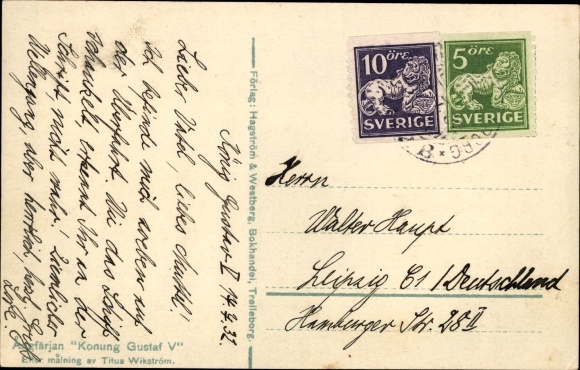 König Gustav V 14.7.32
Lieber Onkel, liebes Muttel!
Ich befinde mich soeben auf
der Überfahrt. Wie das Schiff
schaukelt, erkennt Ihr an der
Schrift, nicht wahr! Ziemlicher
Wellengang, aber herrlich,
Ångfärjan "Konung Gustaf V"
Efter målning av Titus Wikström.
Förlag: Hagström & Westberg, Bokhandel, Trelleborg.
10 ÖRE
SVERIGE
5 ÖRE
SVERIGE
Herrn
Walter Haupt
Leipzig C1 / Deutschland
Hamburger Str. 28 II